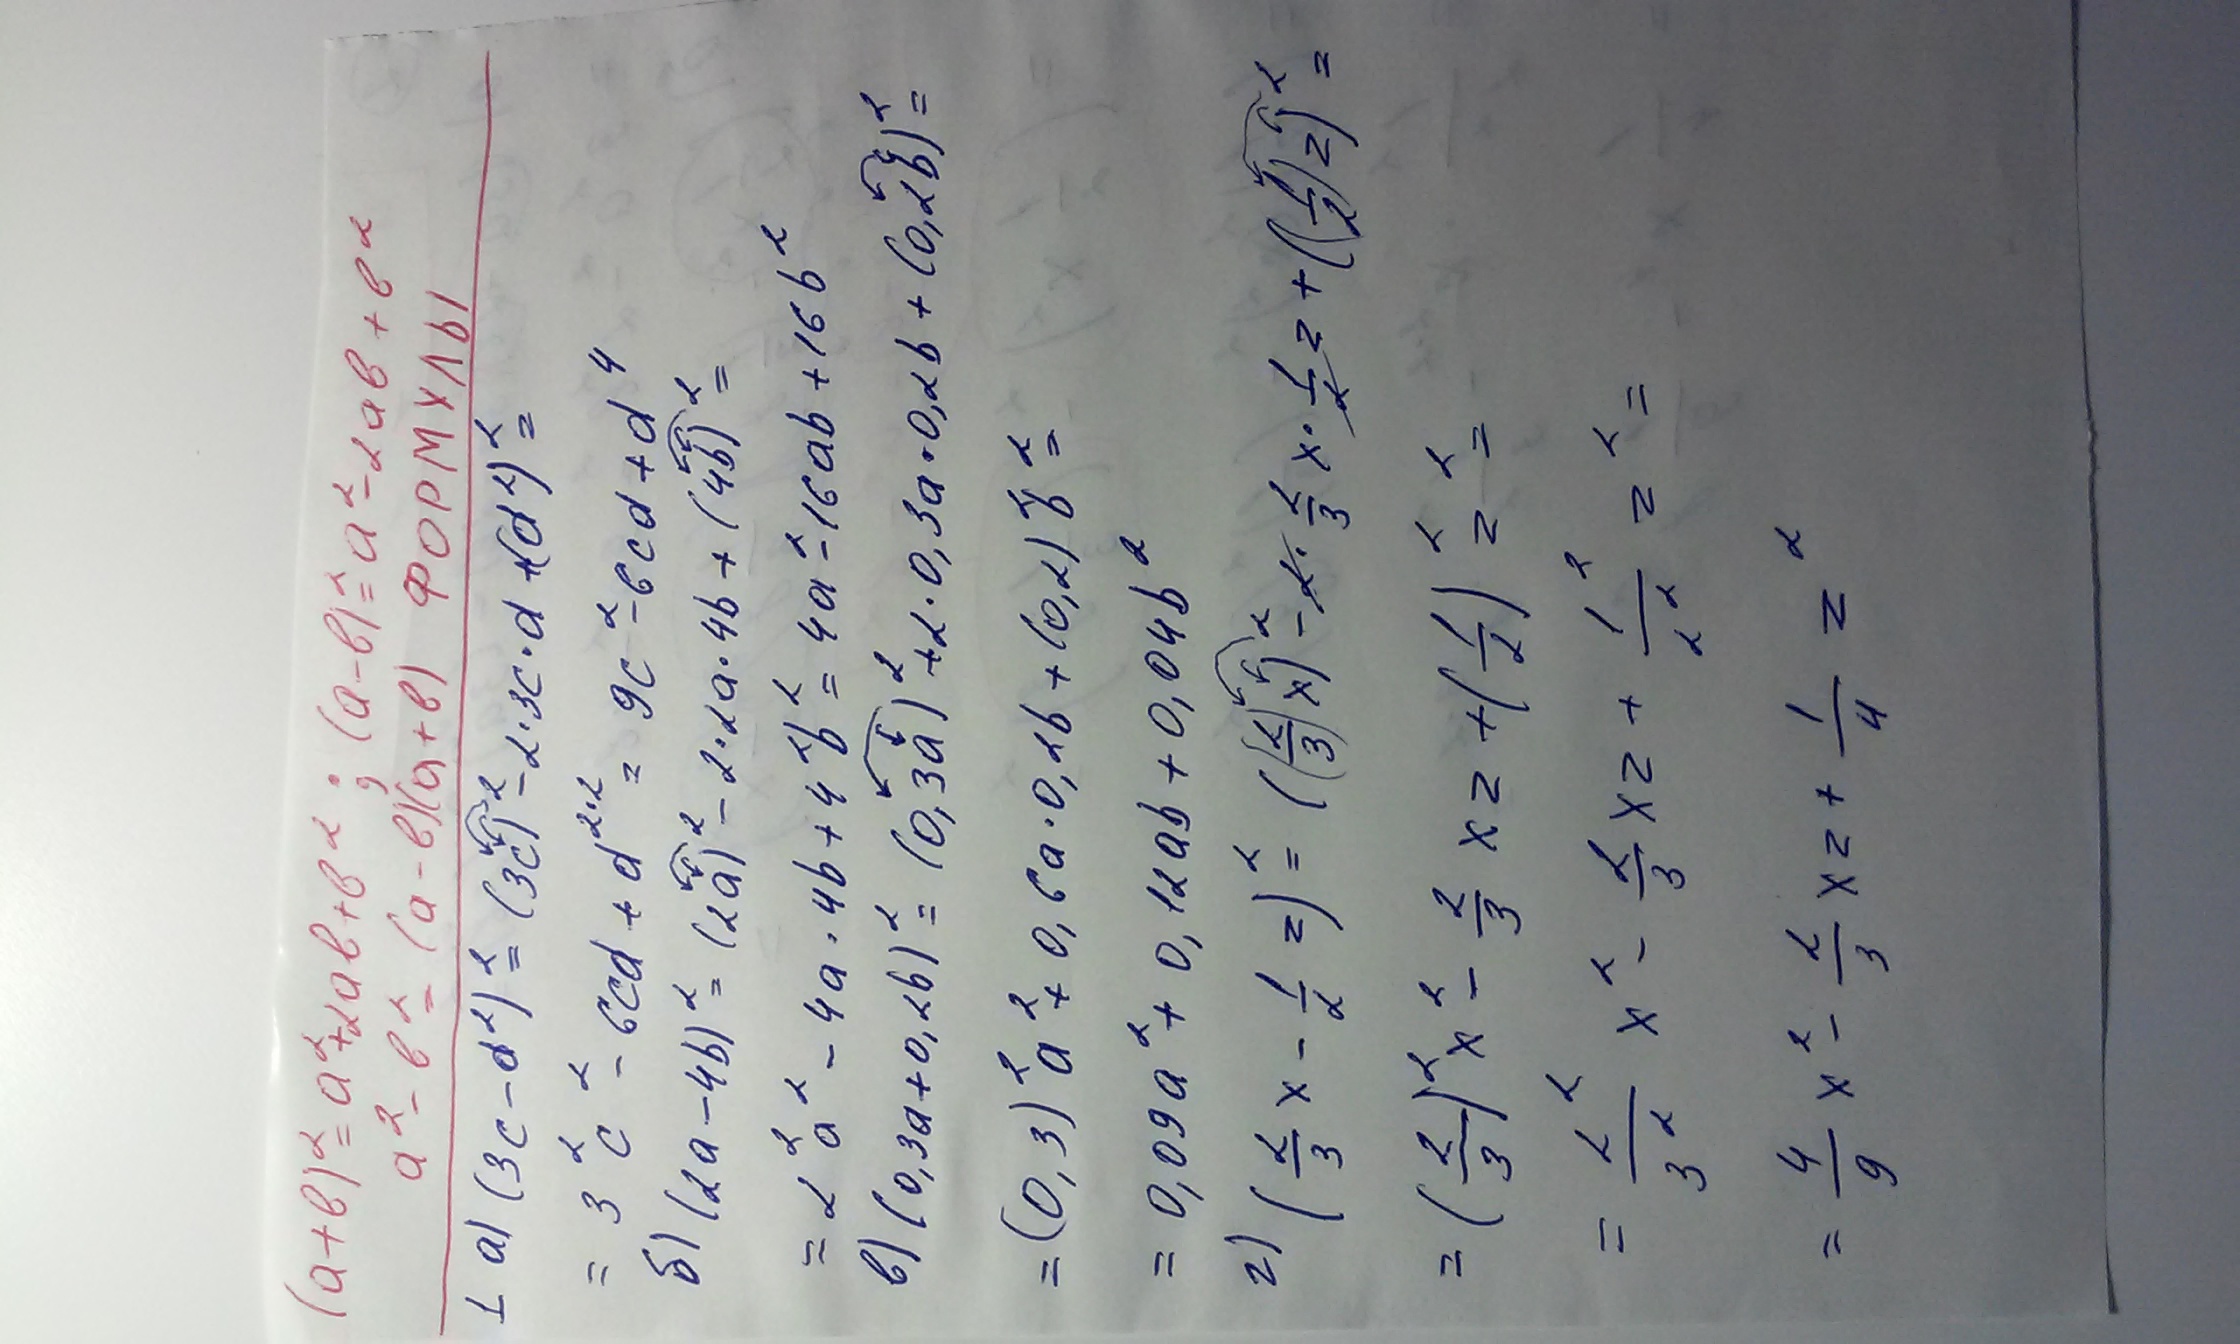 (a+в)²=a²+2aв+в²; (a-в)²=a²-2aв+в²
a²-в²=(a-в)(a+в) ФОРМУЛЫ
1 а) (3c-d²)²=(3c)²-2·3c·d+(d²)²=
=3²c²-6cd+d²·²=9c²-6cd+d⁴
б) (2a-4b)²=(2a)²-2·2a·4b+(4b)²=
=2²a²-4a·4b+4²b²=4a²-16ab+16b²
в) (0,3a+0,2b)²=(0,3a)²+2·0,3a·0,2b+(0,2b)²=
=(0,3)²a²+0,6a·0,2b+(0,2)²b²=
=0,09a²+0,12ab+0,04b²
г) (2/3 x - 1/2 z)²=((2/3)x)²-2·2/3 x·1/2 z+((1/2)z)²=
=(2/3)²x²-2/3 xz+(1/2)²z²=
=2²/3² x²-2/3 xz+1²/2² z²=
=4/9 x²-2/3 xz+1/4 z²